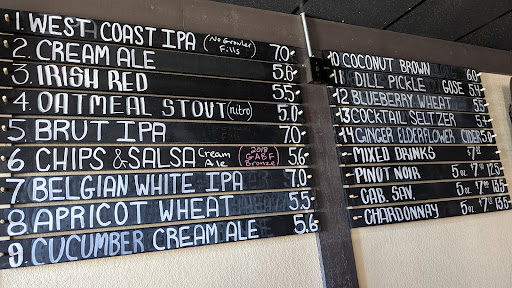 1. WEST COAST IPA (No Growler Fills) 7.0
2. CREAM ALE 5.6
3. IRISH RED 5.5
4. OATMEAL STOUT (nitro) 5.0
5 BRUT IPA 7.0
6 CHIPS & SALSA Cream Ale (2018 GABF Bronze) 5.6
7 BELGIAN WHITE IPA 7.0
8 APRICOT WHEAT 5.5
9. CUCUMBER CREAM ALE 5.6
10 COCONUT BROWN 6.0
11 DILL PICKLE GOSE 5.4
12 BLUEBERRY WHEAT 5.5
13 COCKTAIL SELTZER 5+
14 GINGER ELDERFLOWER CIDER 5.0
MIXED DRINKS $7
PINOT NOIR 5 oz $7 12.5
CAB. SAV. 5 oz $7 13.5
CHARDONNAY 5 oz $7 13.5